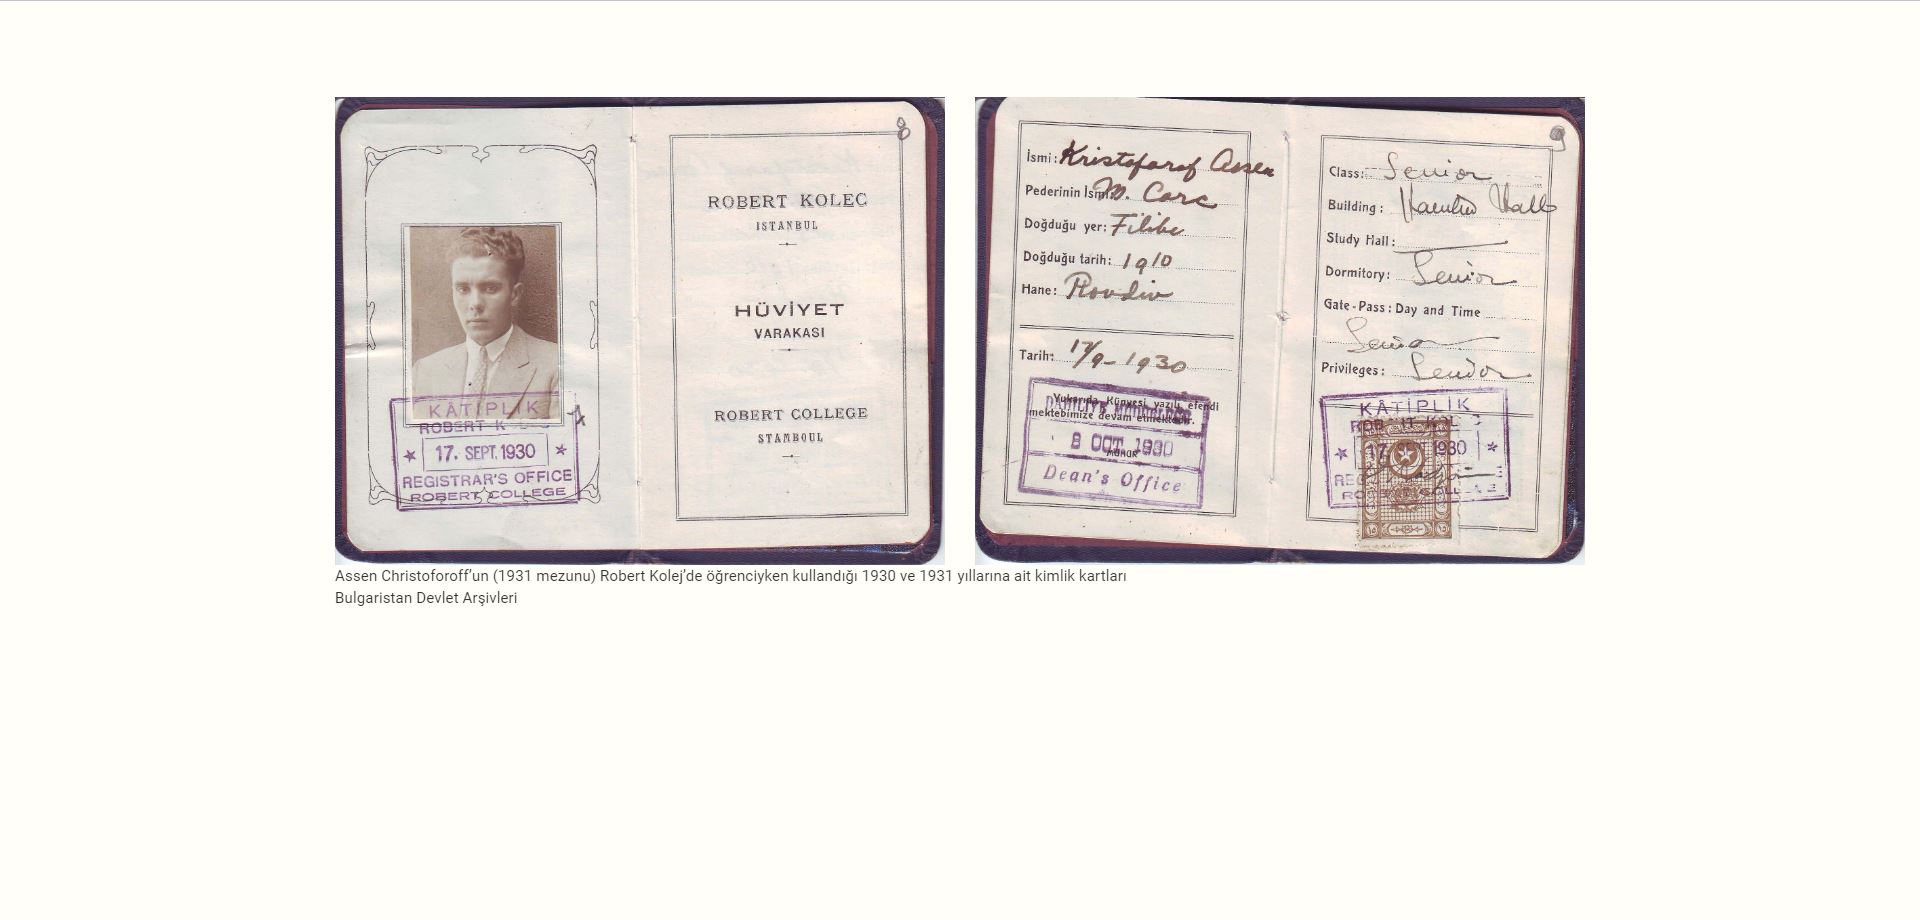 8
ROBERT KOLEC
ISTANBUL
HÜVİYET
VARAKASI
ROBERT COLLEGE
STAMBOUL
KÂTİPLİK
ROBERT K
17. SEPT. 1930
REGISTRAR'S OFFICE
ROBERT COLLEGE
İsmi: Kristofarof Assen
Pederinin İsmi: M.
Doğduğu yer: Filibe
Doğduğu tarih: 1910
Hane: Plovdiv
Tarih: 17/9-1930
Yukarıda Künyesi yazılı efendi
mektebimize devam etmektedir.
MÜHÜR
8 OCT 1930
Dean's Office
9
Class: Senior
Building: Hall
Study Hall:
Dormitory: Senior
Gate-Pass: Day and Time
Senior
Privileges: Senior
KÂTİPLİK
17 1930
Assen Christoforoff'un (1931 mezunu) Robert Kolej'de öğrenciyken kullandığı 1930 ve 1931 yıllarına ait kimlik kartları
Bulgaristan Devlet Arşivleri